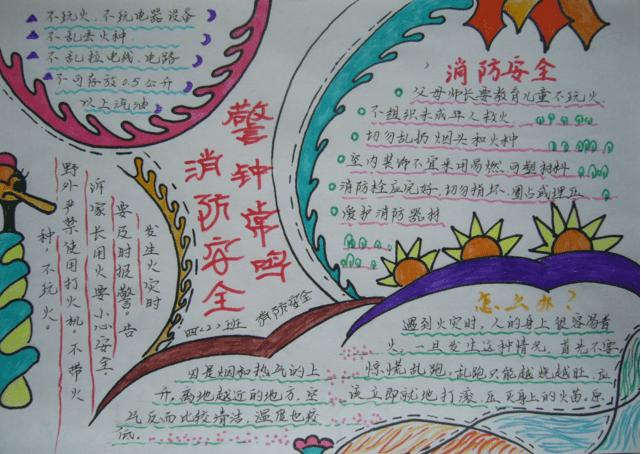 不玩火、不玩电器设备
不乱丢火种
不乱拉电线、电路
不可存放0.5公升
以上汽油
警钟常鸣
消防安全
消防安全
父母师长要教育儿童不玩火
不组织未成年人救火
切勿乱扔烟头和火种
室内装饰不宜采用易燃可塑材料
消防栓应完好,切勿损坏、圈占或埋压
爱护消防器材
发生火灾时
要及时报警。告
诉家长用火要小心安全.
野外严禁使用打火机。不带火
种,不玩火。
四(2)班
消防安全
因是烟和热气的上
升。离地越近的地方,空
气反而比较清洁,温度也较
低。
怎么办?
遇到火灾时,人的身上很容易着
火,一旦发生这种情况,首先不要
惊慌乱跑。乱跑只能越烧越旺,应
该立即就地打滚,压灭身上的火苗。原